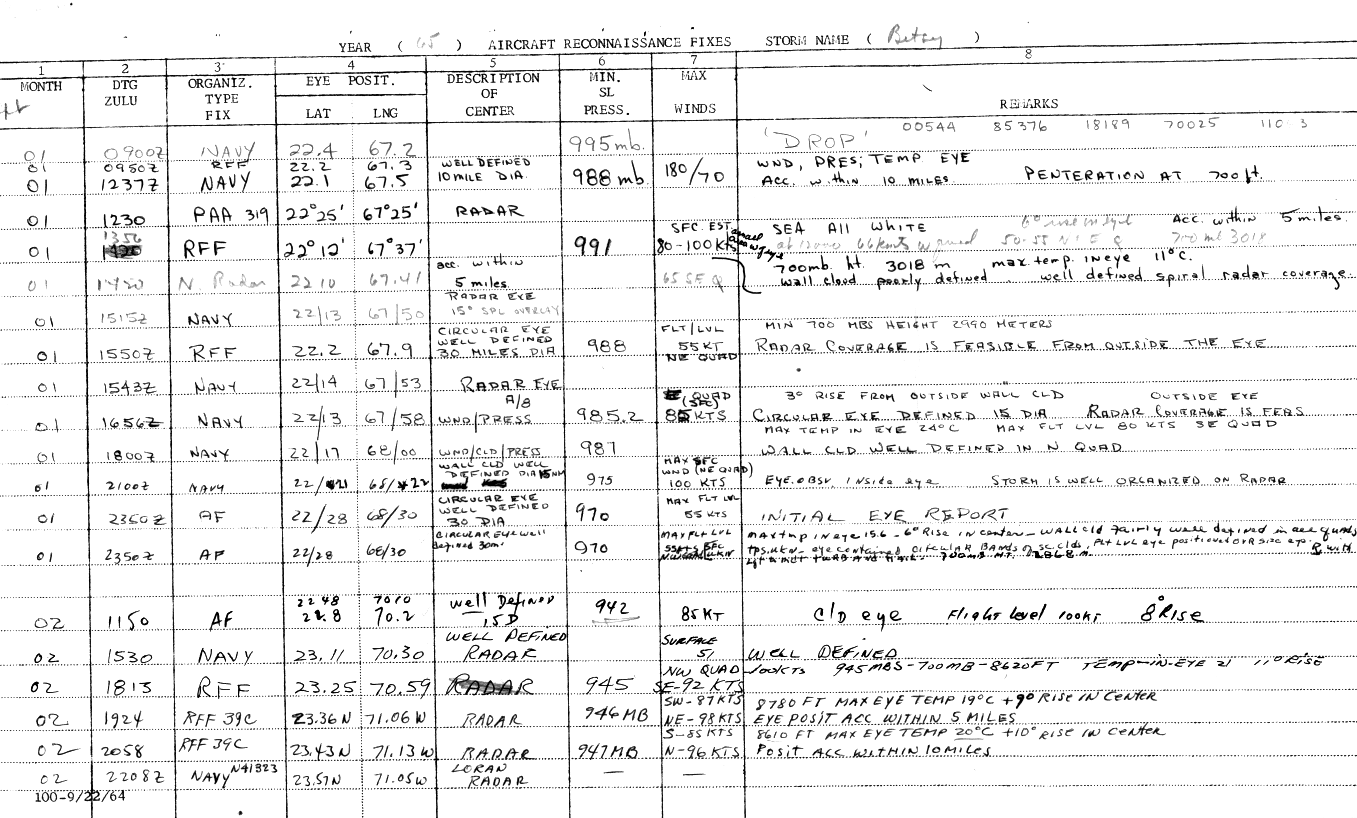 YEAR ( 65 ) AIRCRAFT RECONNAISSANCE FIXES STORM NAME ( Betsy )
1 2 3 4 5 6 7 8
MONTH DTG ZULU ORGANIZ. TYPE FIX EYE POSIT. LAT LNG DESCRIPTION OF CENTER MIN. SL PRESS. MAX WINDS REMARKS
01 0900Z NAVY 22.4 67.2 995mb. 'DROP' 00544 85376 18189 70025
01 0980Z RFF 22.2 67.3 WELL DEFINED WND, PRES; TEMP EYE
01 1237Z NAVY 22.1 67.5 10 MILE DIA. 988 mb 180/70 ACC. within 10 MILES. PENTERATION AT 700 ft.
01 1230 PAA 319 22°25' 67°25' RADAR
SFC. EST. SEA All White 6° rise in Acc. within 5 miles.
01 1356 RFF 22°12' 67°37' 991 80-100 KTS at 12000 50-55 N E Q 700 mb 3018
700mb. ht. 3018 m max temp. in eye 11°C.
acc. within
01 N. Radar 22 10 67.41 5 miles 65 SE Q wall cloud poorly defined. well defined spiral radar coverage.
RADAR EYE
01 1515Z NAVY 22/13 67/50 15° SPL OVERLAY MIN 700 MBS HEIGHT 2990 METERS
CIRCULAR EYE FLT/LVL
01 1550Z RFF 22.2 67.9 WELL DEFINED 30 MILES DIA 988 55 KT NE QUAD RADAR COVERAGE IS FEASIBLE FROM OUTSIDE THE EYE
01 1543Z NAVY 22/14 67/53 RADAR EYE
A/8 QUAD (SFC) 3° RISE FROM OUTSIDE WALL CLD OUTSIDE EYE
01 1656Z NAVY 22/13 67/58 WND/PRESS 985.2 85 KTS CIRCULAR EYE DEFINED 15 DIA RADAR COVERAGE IS FEAS
MAX TEMP IN EYE 24°C MAX FLT LVL 80 KTS SE QUAD
01 1800Z NAVY 22/17 68/00 WND/CLD/PRESS 987 WALL CLD WELL DEFINED IN N QUAD
WALL CLD WELL MAX SFC
01 2100Z NAVY 22/21 68/22 DEFINED DIA 15 NM 975 WND (NE QUAD) 100 KTS EYE OBSV. INSIDE eye STORM IS WELL ORGANIZED ON RADAR
CIRCULAR EYE MAX FLT LVL
01 2350Z AF 22/28 68/30 WELL DEFINED 30 DIA 970 55 KTS INITIAL EYE REPORT
CIRCULAR EYE well MAX FLT LVL MAX tmp in eye 15.6 - 6° Rise in center - WALL cld Fairly well defined in all quads
01 2350Z AF 22/28 68/30 defined 30mi 970 eye contained CIRCULAR BANDS of sc clds, FLT LVL eye
22 48 70 10 well Defined
02 1150 AF 22.8 70.2 15 D 942 85 KT C/D eye Flight level 100 KT 8° Rise
WELL DEFINED SURFACE
02 1530 NAVY 23.11 70.30 RADAR 51 WELL DEFINED
NW QUAD 100 KTS 945 MBS-700 MB-8620 FT TEMP-IN-EYE 21 11° RISE
02 1813 RFF 23.25 70.59 RADAR 945 SE-92 KTS
SW-87 KTS 8780 FT MAX EYE TEMP 19°C +9° RISE IN CENTER
02 1924 RFF 39C 23.36 N 71.06 W RADAR 946 MB NE-98 KTS EYE POSIT ACC WITHIN 5 MILES
S-85 KTS 8610 FT MAX EYE TEMP 20°C +10° RISE IN CENTER
02 2058 RFF 39C 23.43 N 71.13 W RADAR 947 MB N-96 KTS POSIT ACC WITHIN 10 MILES
02 2208Z NAVY N41323 23.57 N 71.05 W LORAN RADAR — —
100-9/22/64